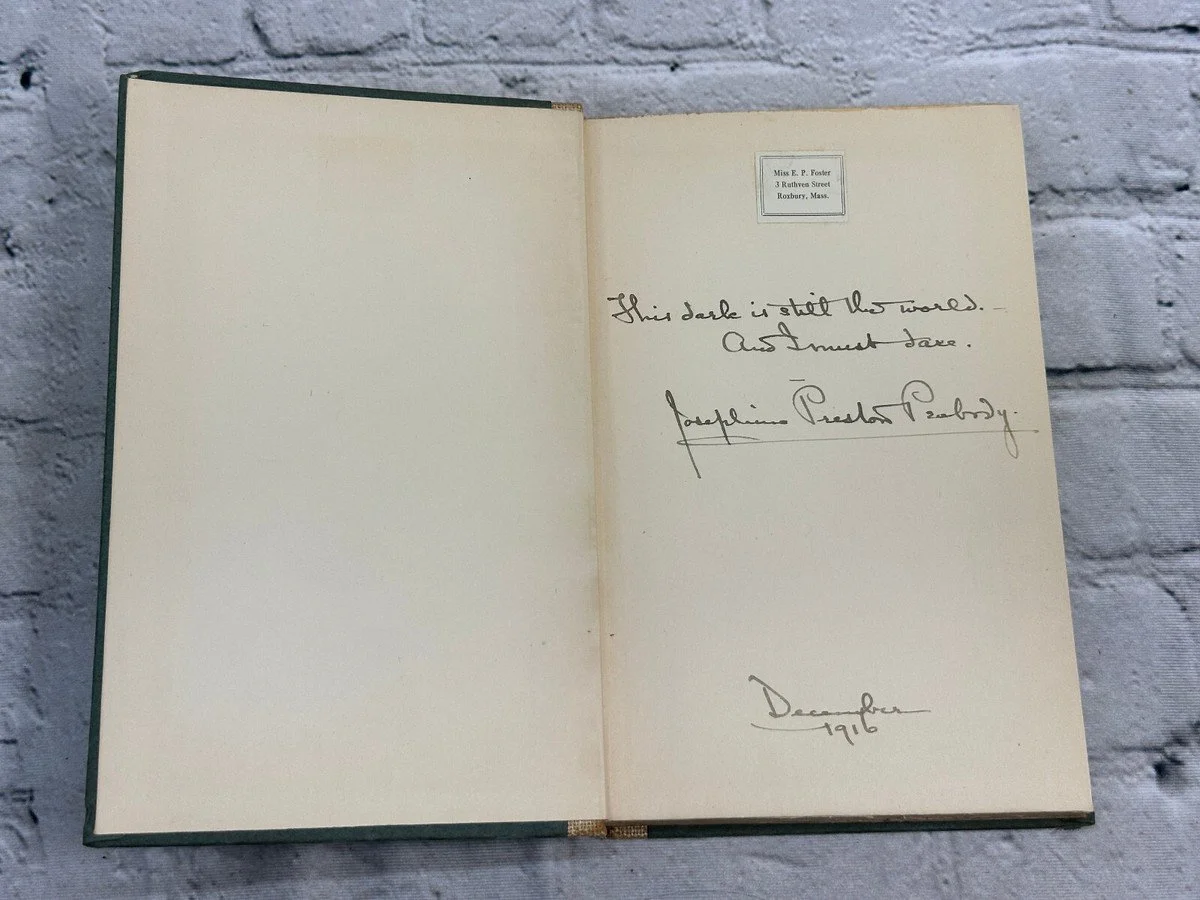 Miss E. P. Foster
3 Ruthven Street
Roxbury, Mass.
This dark is still the world. –
And I must dare.
Josephine Preston Peabody.
December
1916